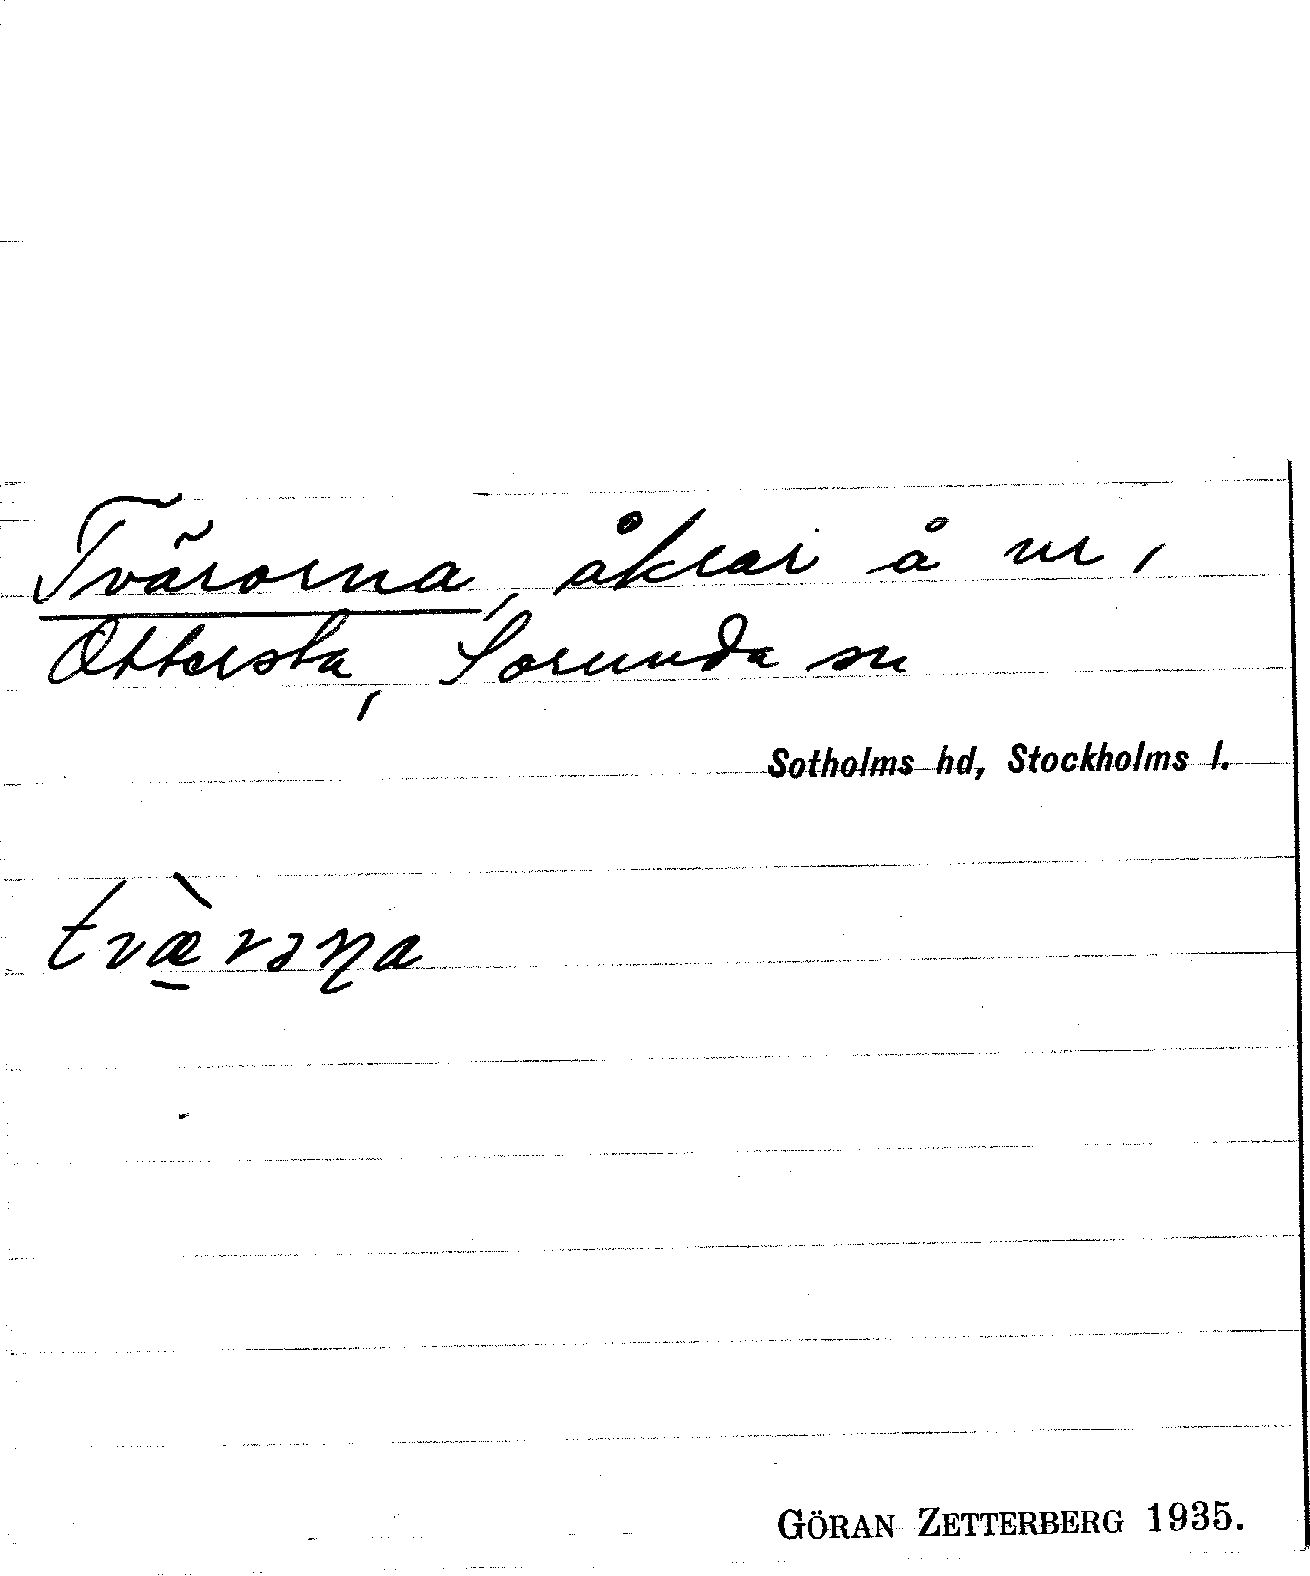 Tvärorna, åkrar å nr 1
Ottersta, Sorunda sn
Sotholms hd, Stockholms l.
tvæ̠̀rəɳa
GÖRAN ZETTERBERG 1935.